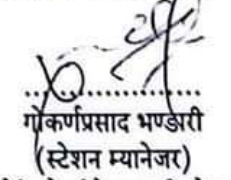 गोकर्णप्रसाद भण्डारी
(स्टेशन म्यानेजर)